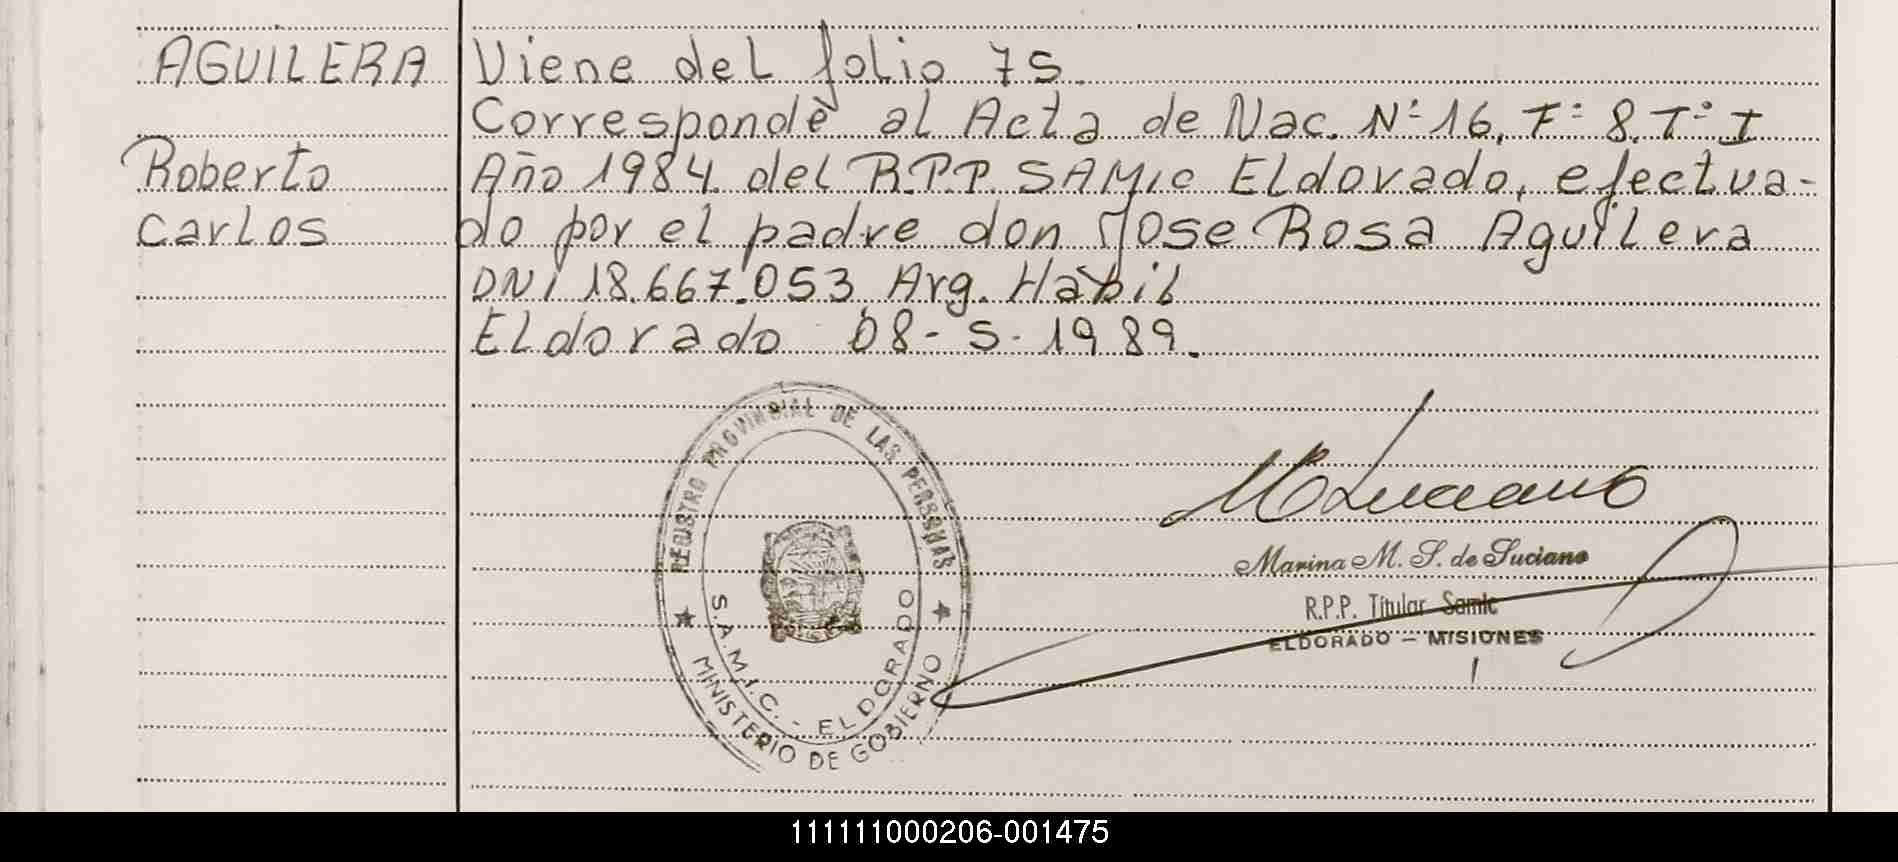 AGUILERA Viene del folio 75.
Corresponde al Acta de Nac. Nº 16, Fº 8, Tº I
Roberto Año 1984 del R.P.P. SAMIC Eldorado, efectua-
Carlos do por el padre don Jose Rosa Aguilera
DNI 18.667.053, Arg. Habil
Eldorado 08-5-1989.
REGISTRO PROVINCIAL DE LAS PERSONAS
S.A.M.I.C. - ELDORADO
MINISTERIO DE GOBIERNO
M Luciano
Marina M. S. de Luciano
R.P.P. Titular Samic
ELDORADO — MISIONES
111111000206-001475